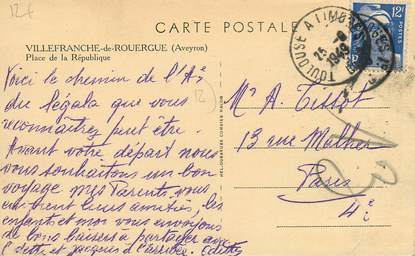 12f
CARTE POSTALE
VILLEFRANCHE-de-ROUERGUE (Aveyron)
Place de la République
TOULOUSE A LIMOGES
25 -8
1949
12F
POSTES
Voici le chemin de l'A
du Ségala que vous
reconnaîtrez peut être.
Avant votre départ nous
vous souhaitons un bon
voyage mes Parents vous
leurs amitiés, les
enfants et moi vous envoyons
de bons baisers à partager avec
et Jacques
12
Mr A. Tissot
13 rue Malher
Paris
4e